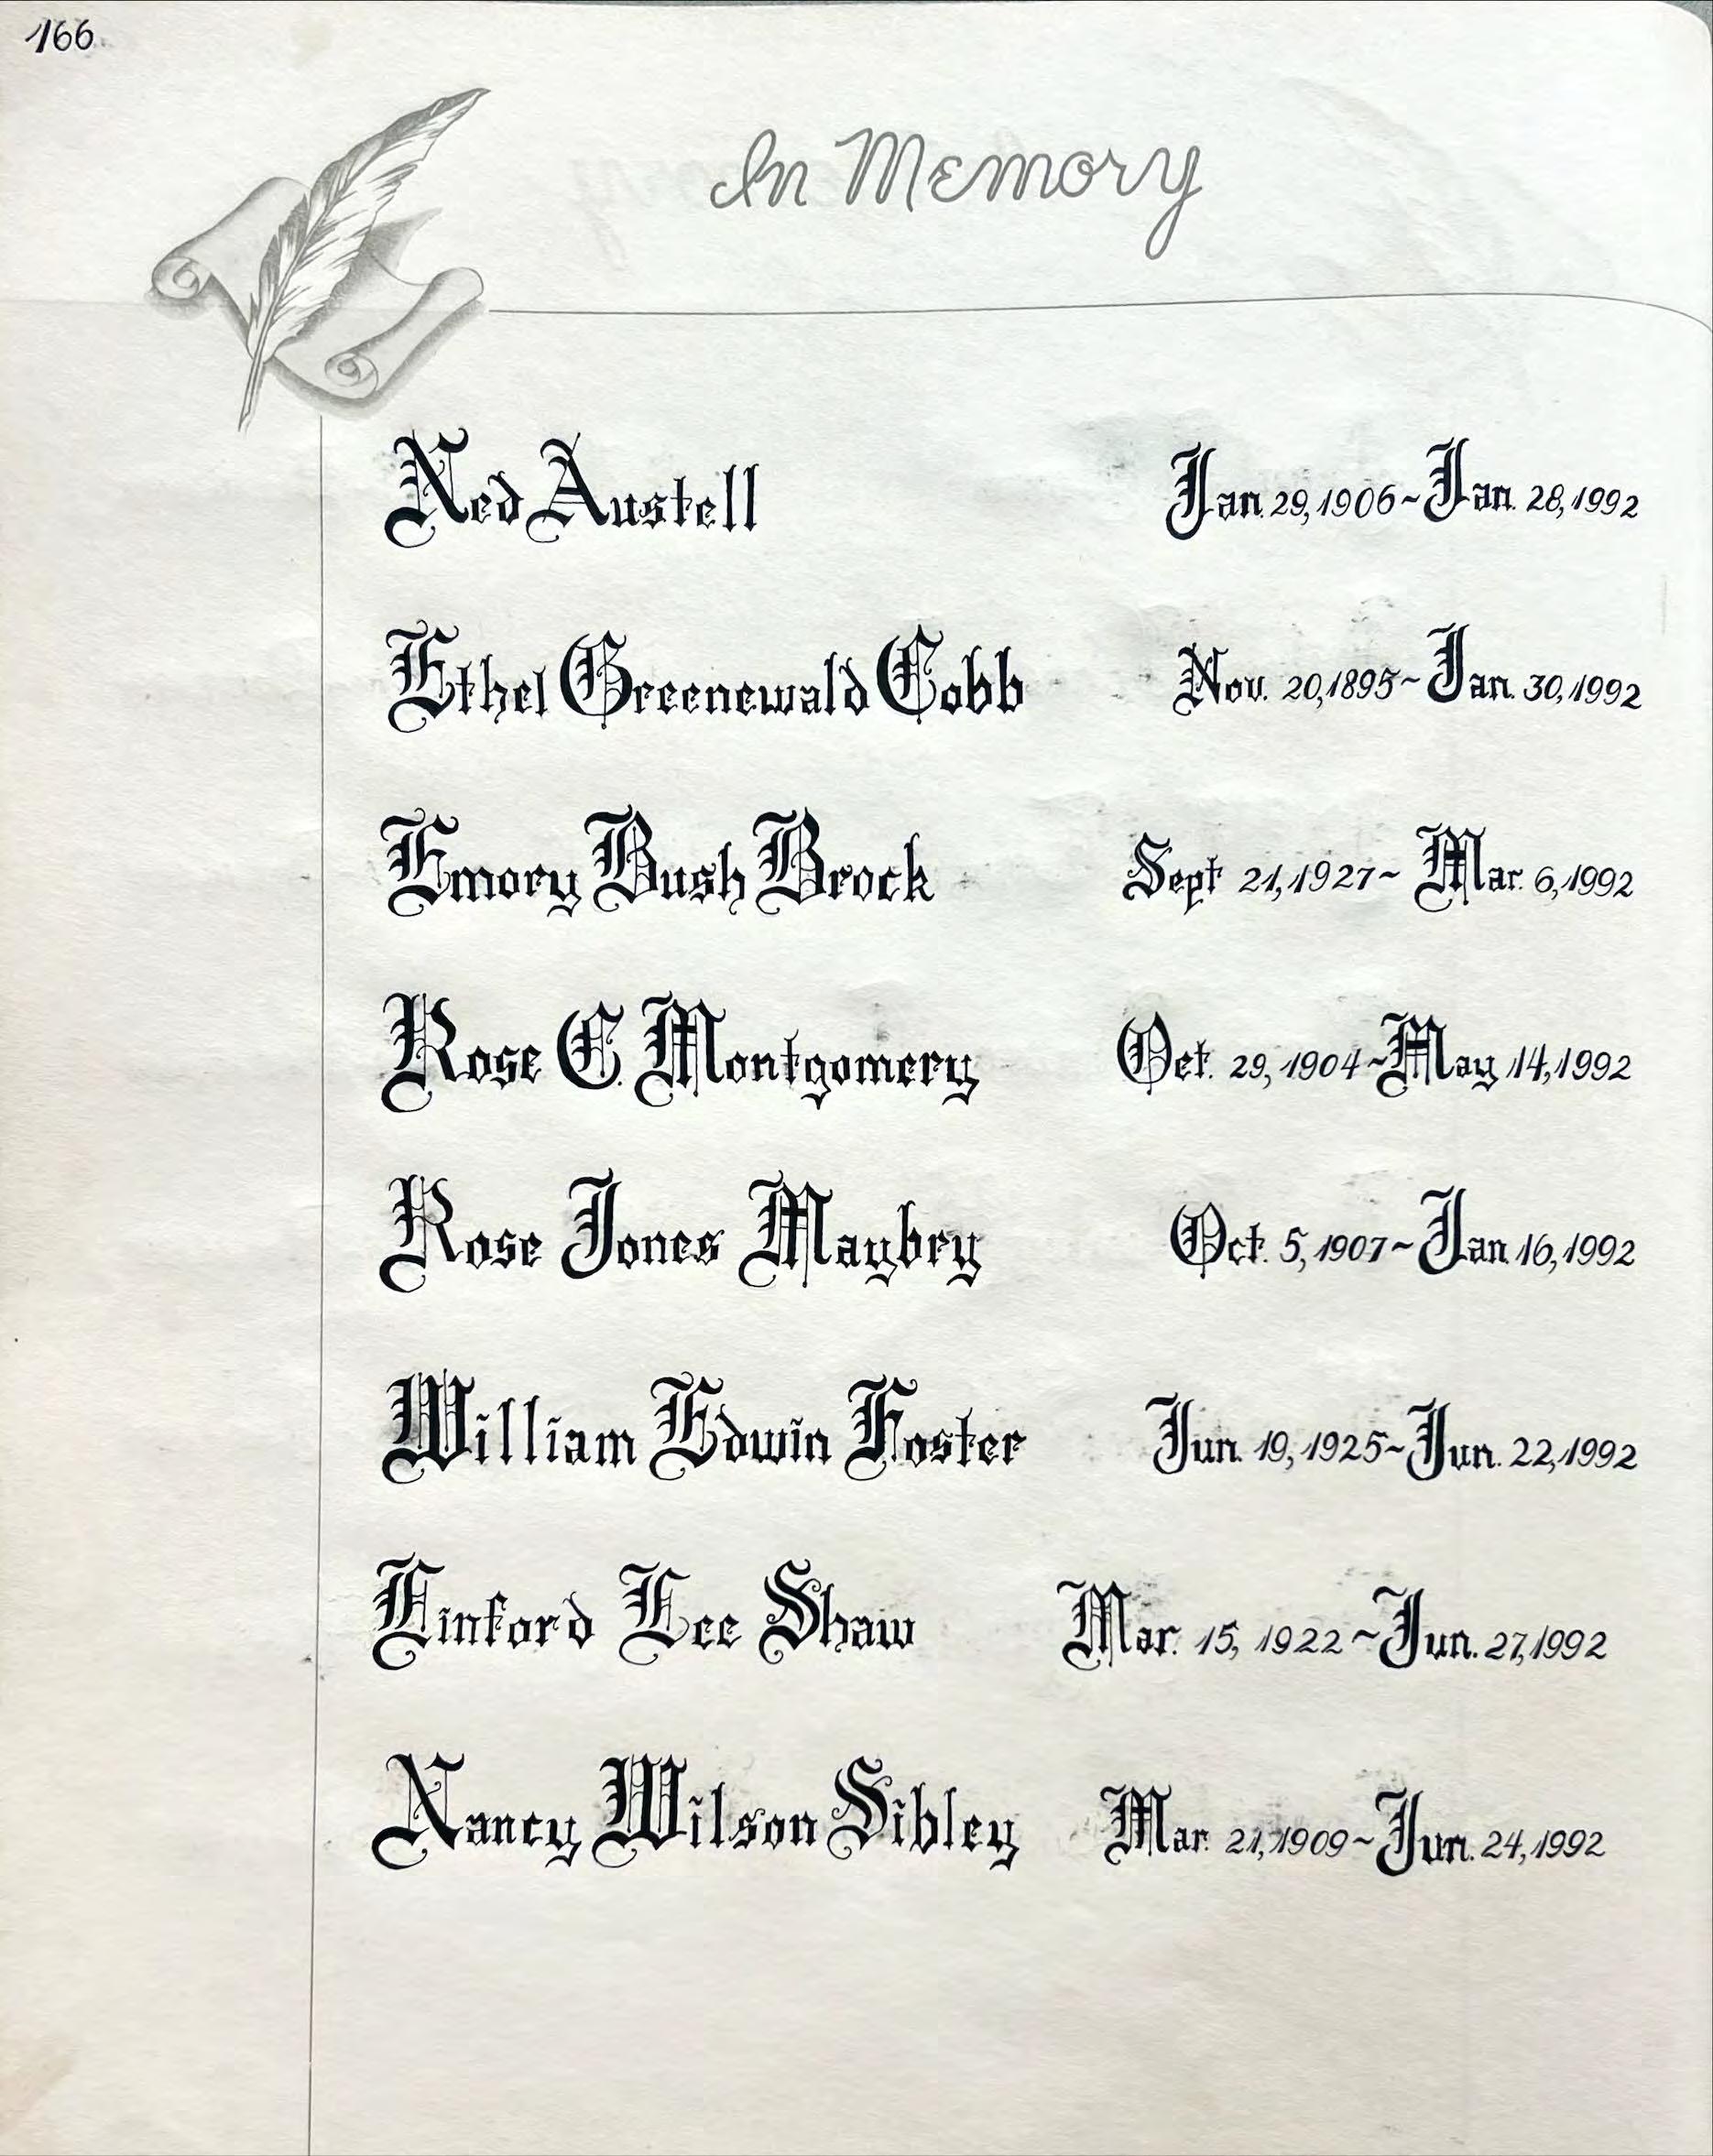 166
In Memory
Ned Austell Jan. 29, 1906 ~ Jan. 28, 1992
Ethel Greenewald Cobb Nov. 20, 1895 ~ Jan. 30, 1992
Emory Bush Brock Sept 21, 1927 ~ Mar. 6, 1992
Rose C. Montgomery Oct. 29, 1904 ~ May 14, 1992
Rose Jones Maybry Oct. 5, 1907 ~ Jan 16, 1992
William Edwin Foster Jun. 19, 1925 ~ Jun. 22, 1992
Linford Lee Shaw Mar. 15, 1922 ~ Jun. 27, 1992
Nancy Wilson Sibley Mar. 21, 1909 ~ Jun. 24, 1992